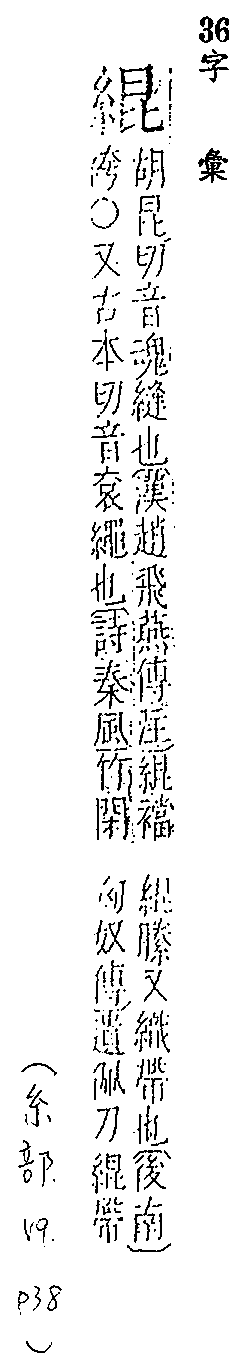 36字彙
緄
胡昆切音魂縫也漢趙飛燕傳注緄襠
袴〇又古本切音袞繩也詩秦風竹閑
緄縢又織帶也後南
匈奴傳遺佩刀緄帶
(糸部 19. p38)